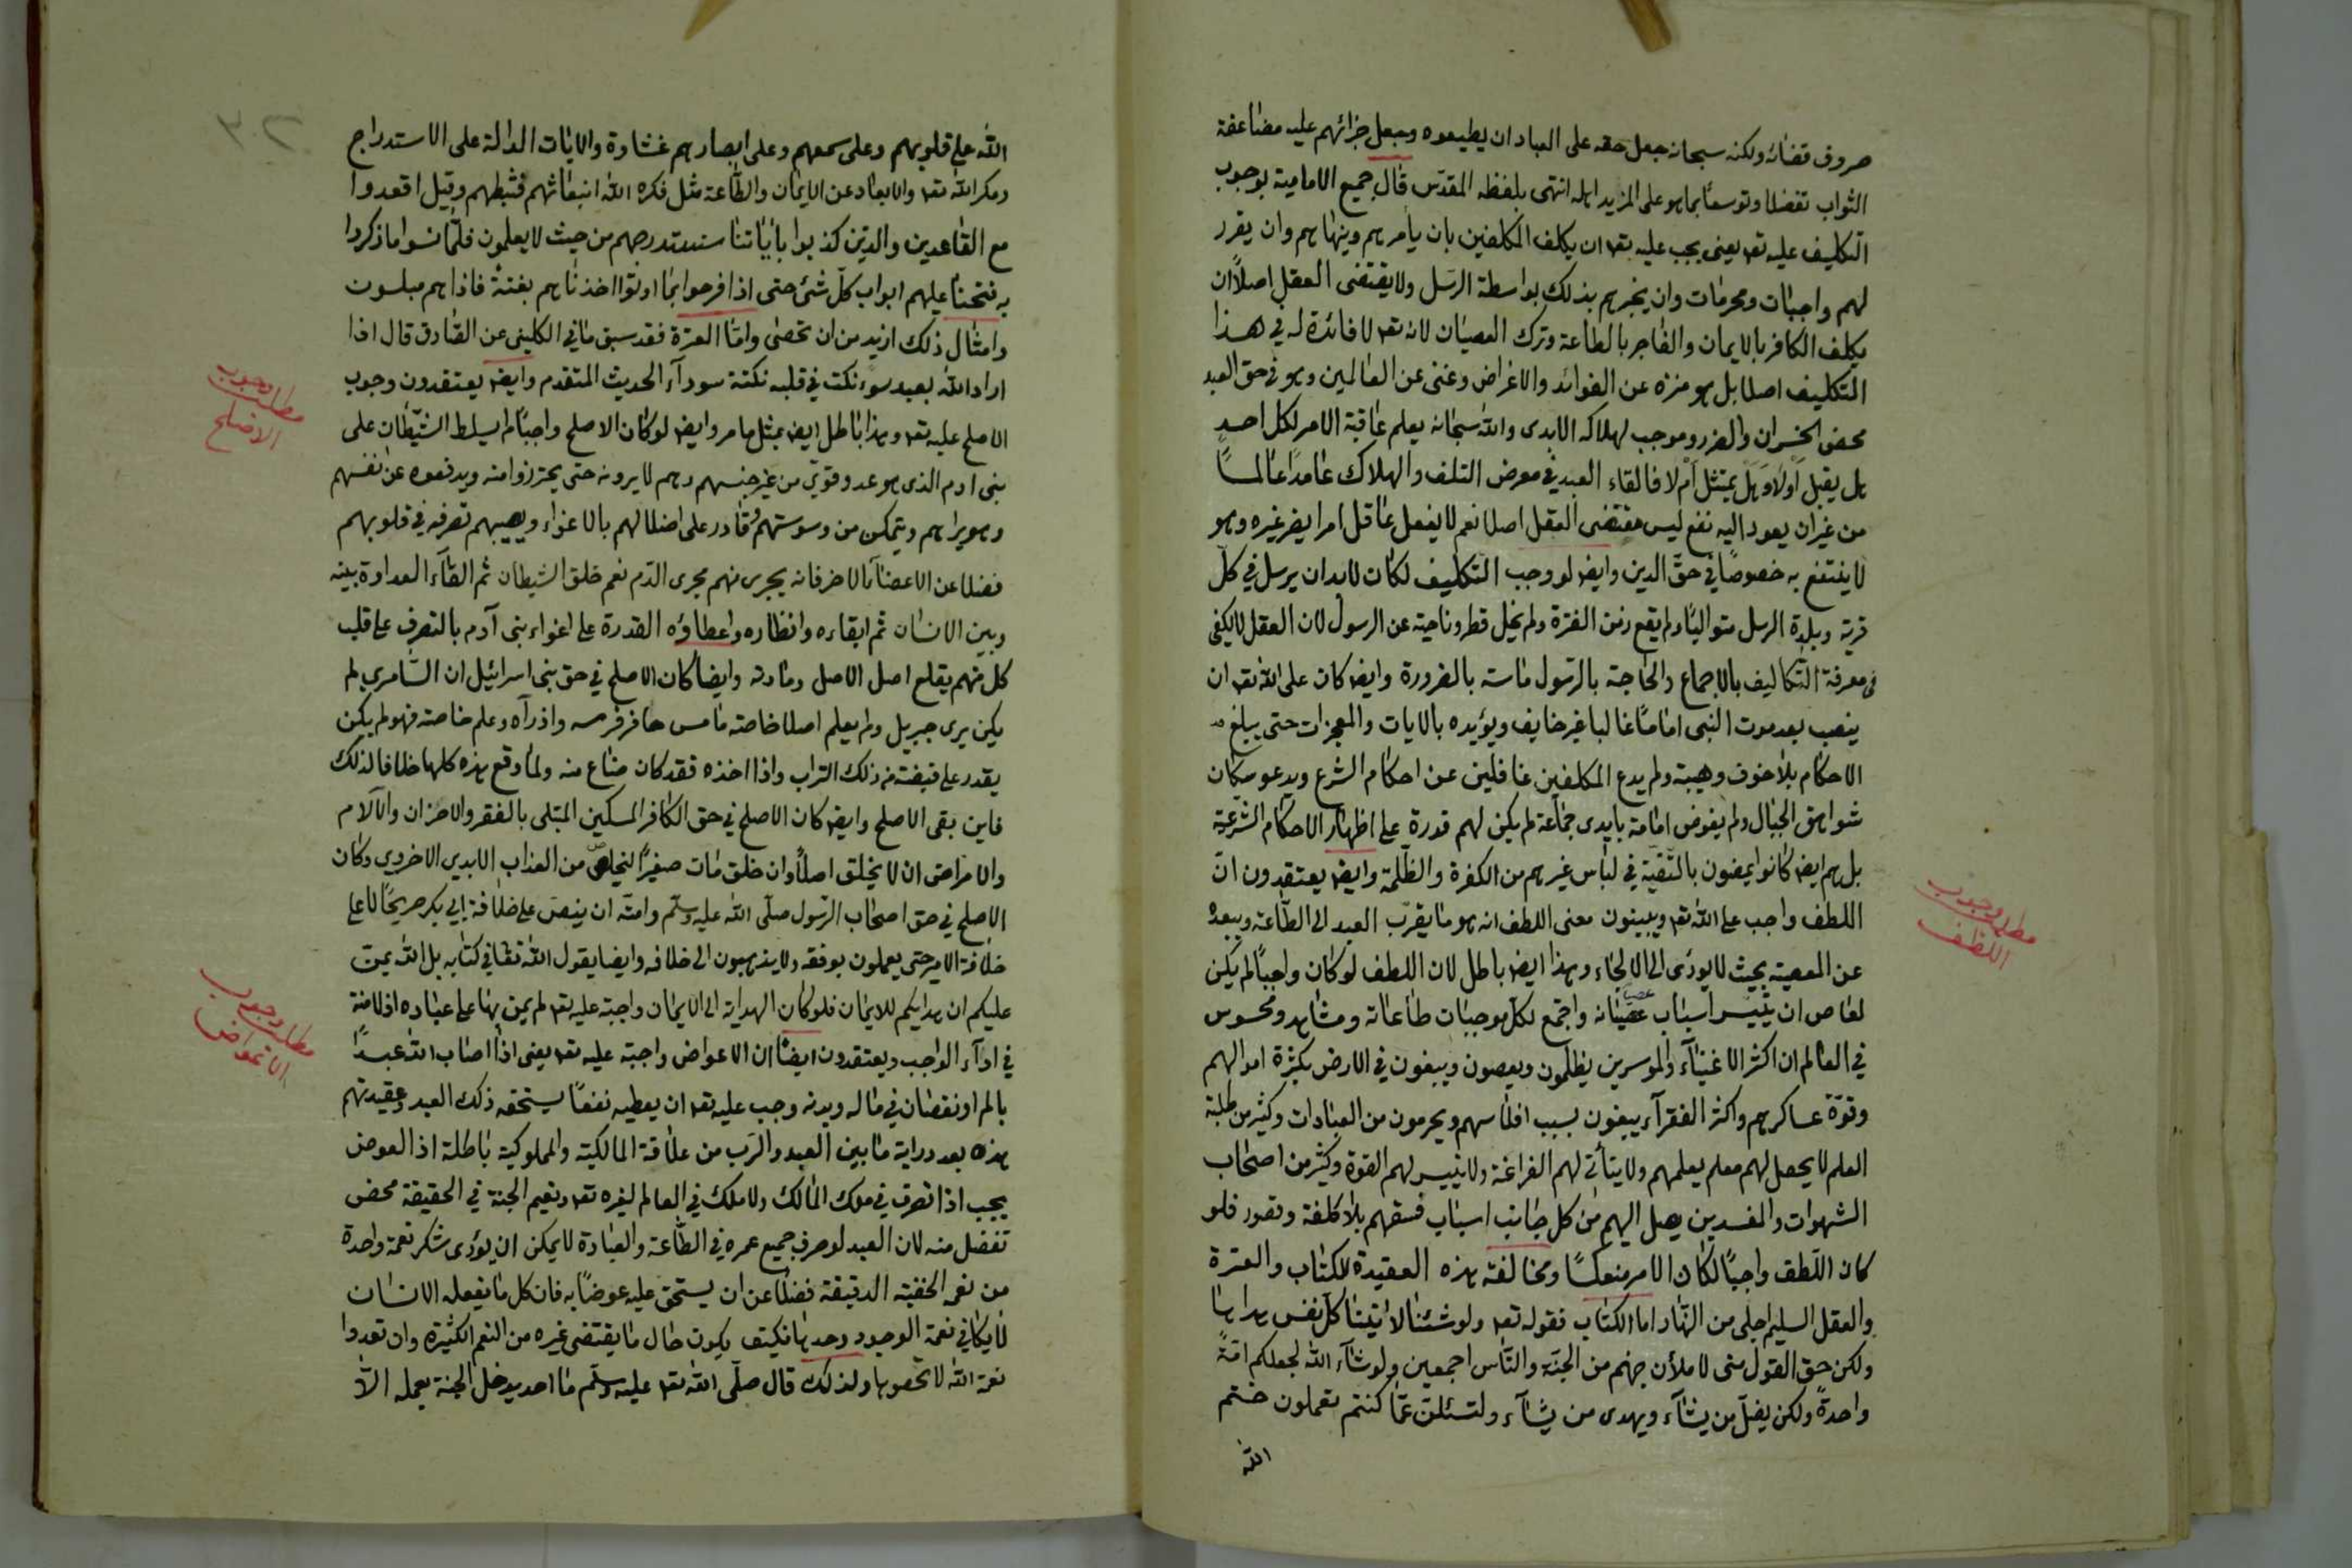 صروف قضائه ولكنه سبحانه جعل حقه على العباد ان يطيعوه وجعل جزائهم عليه مضاعفة
الثواب تفضلا وتوسعا بما هو على المزيد اهله انتهى بلفظه المقدس قال جميع الامامية بوجوب
التكليف عليه تعه يعنى يجب عليه تعه ان يكلف المكلفين بان يأمرهم وينهاهم وان يقرر
لهم واجبات ومحرمات وان يخبرهم بذلك بواسطة الرسل ولا يقتضى العقل اصلاً ان
يكلف الكافر بالايمان والفاجر بالطاعة وترك العصيان لانه تعه لا فائدة له في هذا
التكليف اصلا بل هو منزه عن الفوائد والاغراض وغنى عن العالمين وهو في حق العبد
محض الخسران والضرر وموجب لهلاكه الابدى والله سبحانه يعلم عاقبة الامر لكل احد
هل يقبل اَوْلا وَهَل يمتثل اَمْ لا فالقاء العبد في معرض التلف والهلاك عامداً عالماً
من غير ان يعود اليه نفع ليس مقتضى العقل اصلا نعم لا يفعل عاقل امرا يضر غيره وهو
لا ينتفع به خصوصًا في حقّ الدين وايضه لو وجب التكليف لكان لابد ان يرسل في كلّ
قرية وبلدة الرسل متواليًا ولم يقع زمن الفترة ولم يخل قطر وناحية عن الرسول لان العقل لا يكفى
فى معرفة التكاليف بالاجماع والحاجة بالرسول ماسته بالضرورة وايضه كان على الله تعه ان
ينصب بعد موت النبى اماماً غالبا غير خايف ويؤيده بالايات والمعجزات حتى يبلغ
الاحكام بلا خوف وهيبة ولم يدع المكلفين غافلين عن احكام الشرع ويدعو سكان
شواهق الجبال ولم يفوض امامة بايدى جماعة لم يكن لهم قدرة على اظهار الاحكام الشرعية
بل هم ايضه كانوا يمضون بالتقية في لباس غيرهم من الكفرة والظلمة وايضه يعتقدون انّ
اللطف واجب على الله تعه ويبينون معنى اللطف انه هو ما يقرّب العبد الى الطّاعة ويبعده
عن المعصية بحيث لا يودّى الى الالجاء وهذا ايضه باطل لان اللطف لو كان واجبًا لم يكن
لعاص ان يتيسر اسباب عصيانه واجتمع لكل موجبات طاعاته ومشاهد ومحسوس
في العالم ان اكثر الاغنيآء والموسرين يظلمون ويعصون ويبغون في الارض بكثرة اموالهم
وقوّة عساكرهم واكثر الفقرآء يبغون بسبب افلاسهم ويحرمون من العبادات وكثير من طلبة
العلم لا يحصل لهم معلم يعلمهم ولا يتأتى لهم الفراغة ولا يتيسر لهم القوة وكثير من اصحاب
الشهوات والمفسدين يصل اليهم من كل جانب اسباب فسقهم بلا كلفة وقصور فلو
كان اللّطف واجبًا لكان الامر منعكسًا ومخالفة هذه العقيدة للكتاب والعترة
والعقل السليم اجلى من النّهار اما الكتاب فقوله تعه ولو شئنا لآتينا كلّ نفس هداها
ولكن حق القول منى لاملأن جهنم من الجنّة والنّاس اجمعين ولو شآء الله لجعلكم امّةً
واحدةً ولكن يضلّ من يشآء ويهدى من يشآء ولتسئلنّ عمّا كنتم تعملون ختم
الله
مطلب وجوب
اللطف
٣٠٢
الله على قلوبهم وعلى سمعهم وعلى ابصارهم غشاوة والايات الدالة على الاستدراج
ومكر الله تعه والابعاد عن الايمان والطّاعة مثل فكره الله انبعاثهم فثبطهم وقيل اقعدوا
مع القاعدين والذين كذبوا باياتنا سنستدرجهم من حيث لا يعلمون فلمّا نسوا ما ذكروا
به فتحنا عليهم ابواب كلّ شئ حتى اذا فرحوا بما اوتوا اخذناهم بغتةً فاذا هم مبلسون
وامثال ذلك ازيد من ان تحصى وامّا العترة فقد سبق ما في الكلينى عن الصّادق قال اذا
اراد الله بعبد سوء نكت في قلبه نكتة سودآء الحديث المتقدم وايضه يعتقدون وجوب
الاصلح عليه تعه وهذا باطل ايضه بمثل ما مر وايضه لو كان الاصلح واجبًا لم يسلط الشّيطان على
بنى ادم الذى هو عدو قوىّ من غير جنسهم وهم لا يرونه حتى يحترزوا منه ويدفعوه عن انفسهم
وهو يراهم ويتمكن من وسوستهم وقادر على اضلالهم بالاغواء ويصيبهم تصرفه في قلوبهم
فضلا عن الاعضآء الاخر فانه يجرى منهم مجرى الدّم نعم خلق الشيطان ثم القآء العداوة بينه
وبين الانسان ثم ابقاءه وانظاره واعطاؤه القدرة على اغواء بنى آدم بالتصرف على قلب
كل منهم يقلع اصل الاصل ومادته وايضا كان الاصلح في حق بنى اسرائيل ان السّامرى لم
يكن يرى جبريل ولم يعلم اصلا خاصة ما مس حافر فرسه واذ رآه وعلم خاصته فهو لم يكن
يقدر على قبضته من ذلك التراب واذا اخذه فقد كان ضاع منه ولما وقع هذه كلها خلافا لذلك
فاين بقى الاصلح وايضه كان الاصلح في حق الكافر المسكين المبتلى بالفقر والاحزان والآلام
والامراض ان لا يخلق اصلاً وان خلق مات صغيرًا ليخلص من العذاب الابدى الاخروى وكان
الاصلح في حق اصحاب الرّسول صلّى الله عليه وسلّم وامته ان ينصّ على خلافة ابي بكر صريحًا لا على
خلافة الامير حتى يعملون بوفقه ولا يذهبون الى خلافه وايضا يقول الله تعه في كتابه بل الله يمنّ
عليكم ان هدايكم للايمان فلو كان الهداية الى الايمان واجبة عليه تعه لم يمن بها على عباده اذ لا منة
في ادآء الواجب ويعتقدون ايضًا ان الاعواض واجبة عليه تعه يعنى اذا اصاب الله عبدًا
بالم او نقصان في ماله وبدنه وجب عليه تعه ان يعطيه نفعًا يستحقه ذلك العبد وعقيدتهم
هذه بعد دراية ما بين العبد والرّب من علاقة المالكية والمملوكية باطلة اذ العوض
يجب اذا تصرف في ملك المالك ولا ملك في العالم لغيره تعه ونعيم الجنة في الحقيقة محض
تفضل منه لان العبد لو صرف جميع عمره في الطّاعة والعبادة لا يمكن ان يؤدى شكر نعمة واحدة
من نعمه الخفية الدقيقة فضلا عن ان يستحق عليه عوضًا به فان كل ما يفعله الانسان
لا يكافى نعمة الوجود وحدها فكيف يكون حال ما يقتضى غيره من النعم الكثيرة وان تعدوا
نعمة الله لا تحصوها ولذلك قال صلّى الله تعه عليه وسلّم ما احد يدخل الجنة بعمله الّا
مطلب وجوب
الاصلح
مطلب وجوب
الاعواض